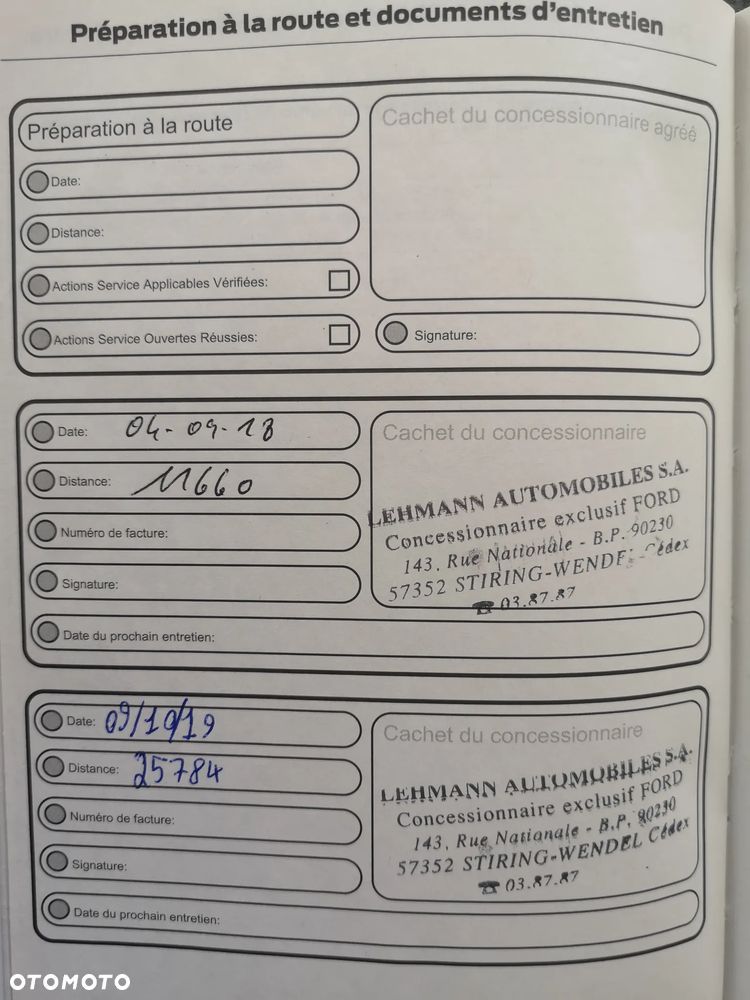 Préparation à la route et documents d'entretien
Préparation à la route
Cachet du concessionnaire agréé
Date:
Distance:
Actions Service Applicables Vérifiées:
Actions Service Ouvertes Réussies:
Signature:
Date: 04-09-18
Cachet du concessionnaire
Distance: 11660
Numéro de facture:
Signature:
LEHMANN AUTOMOBILES S.A.
Concessionnaire exclusif FORD
143, Rue Nationale - B.P. 90230
57352 STIRING-WENDEL Cédex
☎ 03.87.87
Date du prochain entretien:
Date: 09/10/19
Cachet du concessionnaire
Distance: 25784
Numéro de facture:
Signature:
LEHMANN AUTOMOBILES S.A.
Concessionnaire exclusif FORD
143, Rue Nationale - B.P. 90230
57352 STIRING-WENDEL Cédex
☎ 03.87.87
Date du prochain entretien:
OTOMOTO